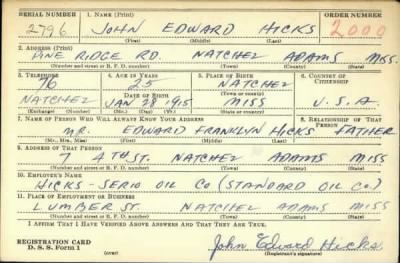 SERIAL NUMBER 1. NAME (Print) ORDER NUMBER
2796 JOHN EDWARD HICKS 2000
(First) (Middle) (Last)
2. ADDRESS (Print)
PINE RIDGE RD. NATCHEZ ADAMS MISS.
(Number and street or R. F. D. number) (Town) (County) (State)
3. TELEPHONE 4. AGE IN YEARS 5. PLACE OF BIRTH 6. COUNTRY OF CITIZENSHIP
76 25 NATCHEZ
DATE OF BIRTH (Town or county)
NATCHEZ JAN 28 1915 MISS U.S.A.
(Exchange) (Number) (Mo.) (Day) (Yr.) (State or country)
7. NAME OF PERSON WHO WILL ALWAYS KNOW YOUR ADDRESS 8. RELATIONSHIP OF THAT PERSON
MR. EDWARD FRANKLYN HICKS FATHER
(Mr., Mrs., Miss) (First) (Middle) (Last)
9. ADDRESS OF THAT PERSON
7 4TH ST. NATCHEZ ADAMS MISS
(Number and street or R. F. D. number) (Town) (County) (State)
10. EMPLOYER'S NAME
HICKS-SERIO OIL CO (STANDARD OIL CO.)
11. PLACE OF EMPLOYMENT OR BUSINESS
LUMBER ST. NATCHEZ ADAMS MISS
(Number and street or R. F. D. number) (Town) (County) (State)
I AFFIRM THAT I HAVE VERIFIED ABOVE ANSWERS AND THAT THEY ARE TRUE.
REGISTRATION CARD
D. S. S. FORM 1 John Edward Hicks
(Registrant's signature)